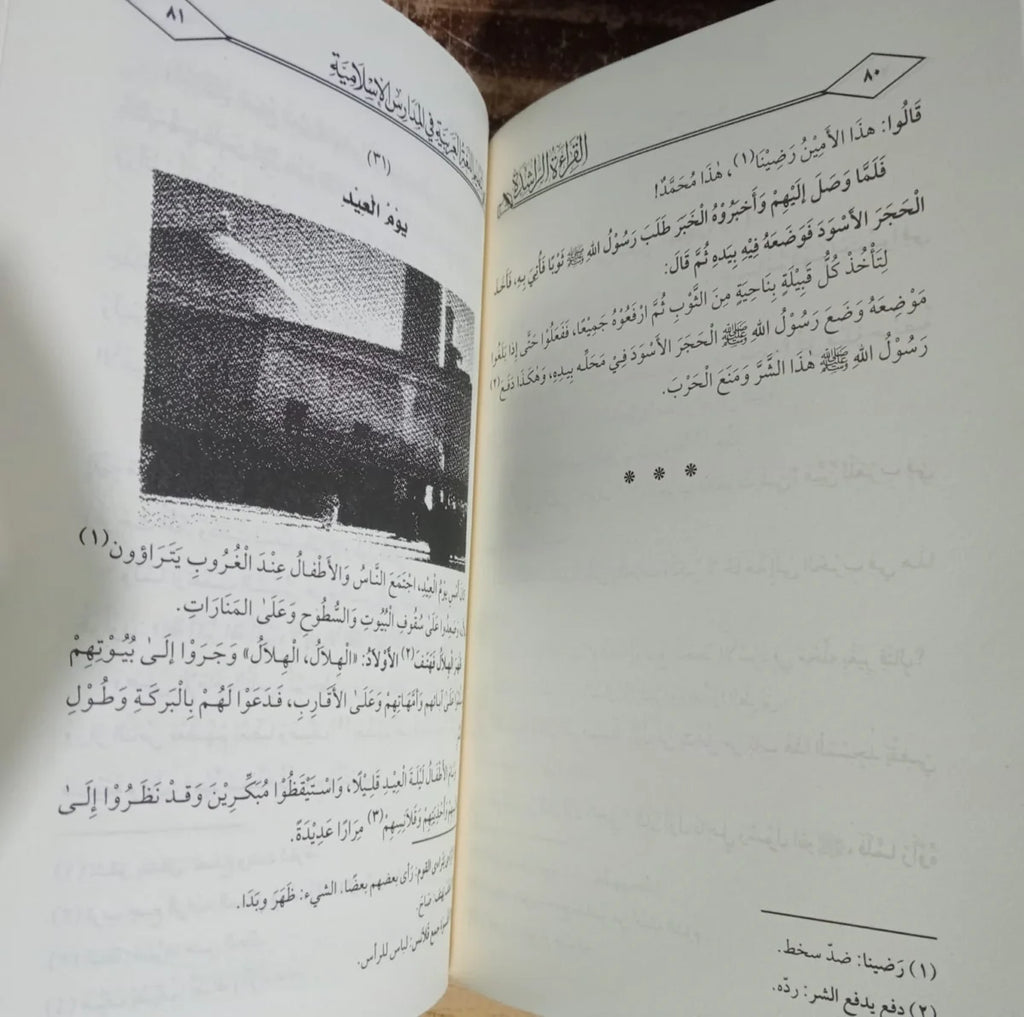 ٨٠
القراءة الراشدة
قَالُوا: هذَا الأَمِيْنُ رَضِيْنَا(١)، هٰذَا مُحَمَّدٌ!
فَلَمَّا وَصَلَ إِلَيْهِمْ وَأَخْبَرُوْهُ الْخَبَرَ طَلَبَ رَسُوْلُ اللهِ ﷺ ثَوْبًا فَأُتِيَ بِهِ، فَأَخَذَ
الْحَجَرَ الأَسْوَدَ فَوَضَعَهُ فِيْهِ بِيَدِهِ ثُمَّ قَالَ:
لِتَأْخُذْ كُلُّ قَبِيْلَةٍ بِنَاحِيَةٍ مِنَ الثَّوْبِ ثُمَّ ارْفَعُوْهُ جَمِيْعًا، فَفَعَلُوْا حَتَّى إِذَا بَلَغُوا
مَوْضِعَهُ وَضَعَ رَسُوْلُ اللهِ ﷺ الْحَجَرَ الأَسْوَدَ فِيْ مَحَلِّه بِيَدِهِ، وَهٰكَذَا دَفَعَ(٢)
رَسُوْلُ اللهِ ﷺ هٰذَا الشَّرَّ وَمَنَعَ الْحَرْبَ.
* * *
(١) رَضينا: ضدّ سخط.
(٢) دفع يدفع الشر: ردّه.
٨١
اللغة العربية في المدارس الإسلامية
(٣١)
يَوْمُ الْعِيْدِ
أَمْسِ يَوْمُ الْعِيْدِ، اجْتَمَعَ النَّاسُ وَالأَطْفَالُ عِنْدَ الْغُرُوبِ يَتَرَاؤون(١)
وَصَعِدُوا عَلَىٰ سُقُوفِ الْبُيُوتِ وَالسُّطُوْحِ وَعَلَىٰ المَنَارَاتِ.
ظَهَرَ الْهِلَالُ فَهَتَفَ(٢) الأَوْلَادُ: «الْهِلَالُ، الْهِلَالُ» وَجَرَوْا إِلَىٰ بُيُوْتِهِمْ
عَلَىٰ آبَائِهِم وَأُمَّهَاتِهِمْ وَعَلَى الأَقَارِبِ، فَدَعَوْا لَهُمْ بِالْبَرَكَةِ وَطُوْلِ
الأَطْفَالُ لَيْلَةَ الْعِيْدِ قَلِيْلًا، وَاسْتَيْقَظُوْا مُبَكِّرِيْنَ وَقَدْ نَظَرُوْا إِلَىٰ
وَأَحْذِيَتِهِمْ وَقَلَانِسِهِمْ(٣) مِرَارًا عَدِيْدَةً.
القوم: رأى بعضهم بعضًا. الشيء: ظَهَرَ وبَدَا.
صَاحَ.
جمع قلانس: لباس للرأس.